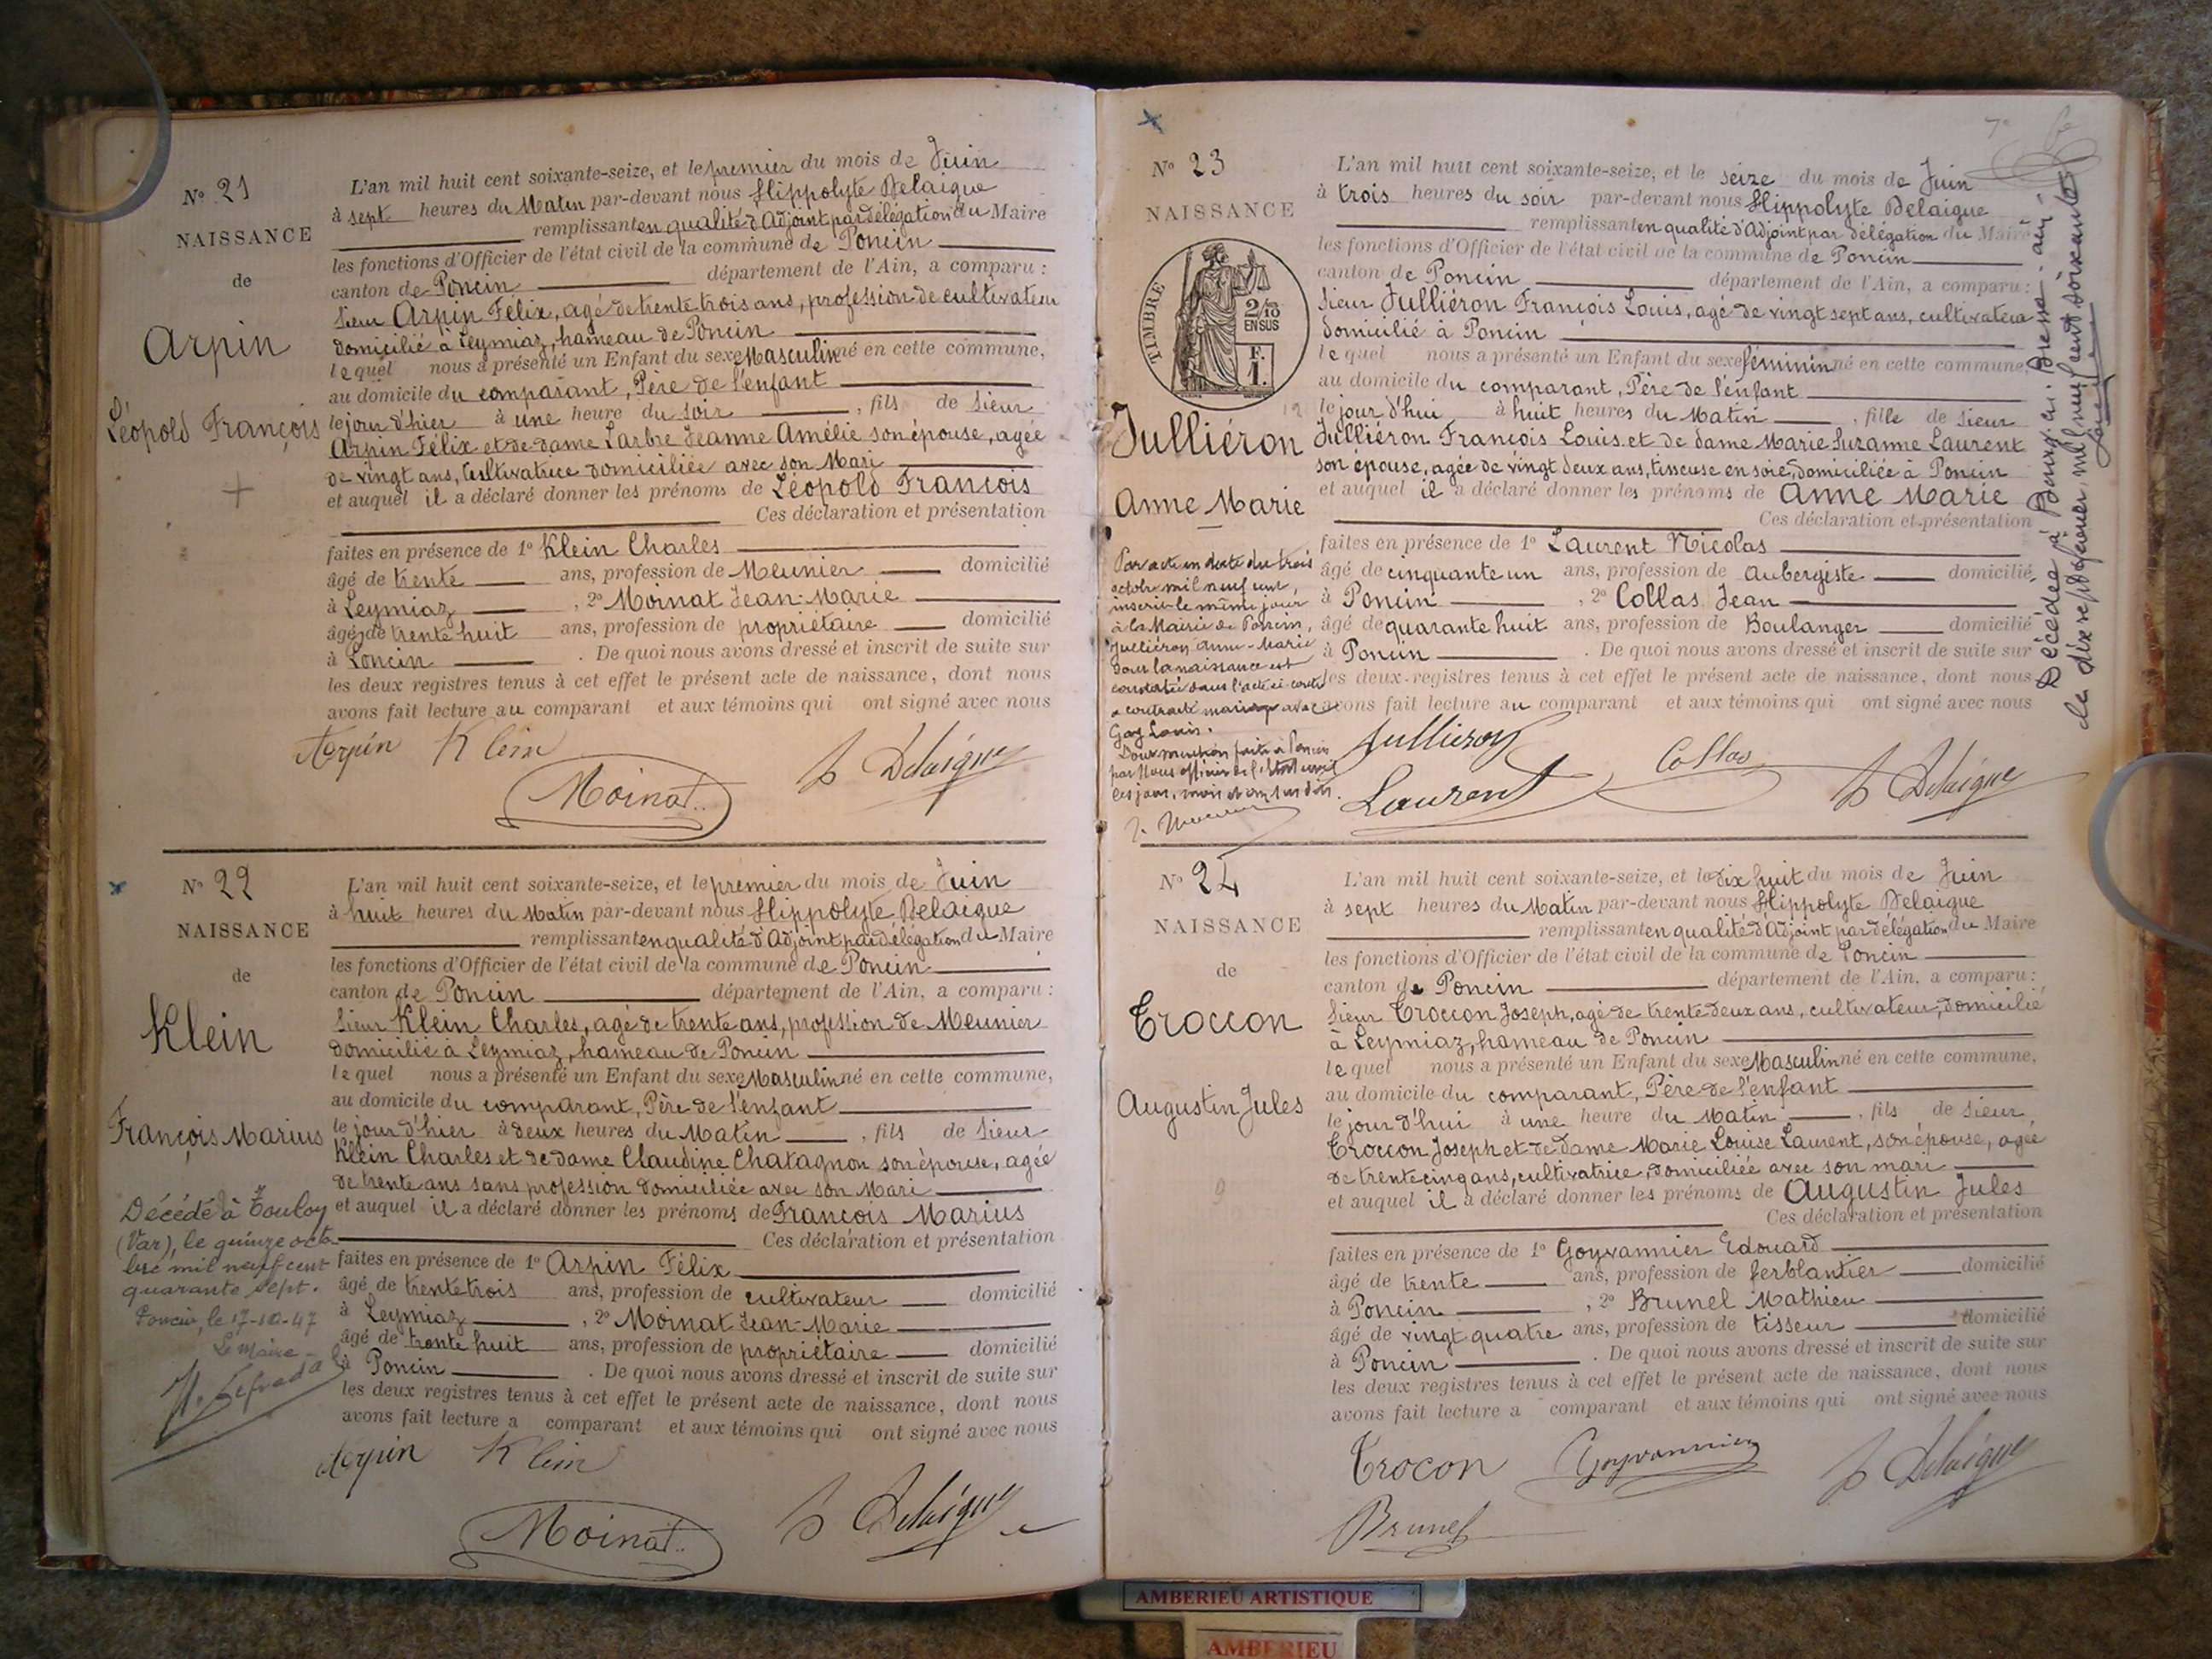 No 21
NAISSANCE
de
Arpin
Léopold François
L'an mil huit cent soixante-seize, et le premier du mois de Juin
à sept heures du Matin par-devant nous Hippolyte Delaigue
remplissant en qualité d'Adjoint par délégation du Maire
les fonctions d'Officier de l'état civil de la commune de Poncin
canton de Poncin département de l'Ain, a comparu :
Sieur Arpin Félix, agé de trente trois ans, profession de cultivateur
domicilié à Leymiaz, hameau de Poncin
lequel nous a présenté un Enfant du sexe Masculin né en cette commune,
au domicile du comparant, Père de l'enfant
le jour d'hier à une heure du soir , fils de Sieur
Arpin Félix et de dame Larbre Jeanne Amélie son épouse, agée
de vingt ans, Cultivatrice domiciliée avec son Mari
et auquel il a déclaré donner les prénoms de Léopold François
Ces déclaration et présentation
faites en présence de 1o Klein Charles
âgé de trente ans, profession de Meunier domicilié
à Leymiaz , 2o Moinat Jean-Marie
âgé de trente huit ans, profession de propriétaire domicilié
à Poncin . De quoi nous avons dressé et inscrit de suite sur
les deux registres tenus à cet effet le présent acte de naissance, dont nous
avons fait lecture au comparant et aux témoins qui ont signé avec nous
Arpin Klein
Moinat H Delaigue
No 22
NAISSANCE
de
Klein
François Marius
Décédé à Toulon
(Var), le quinze octo-
bre mil neuf cent
quarante sept.
Poncin, le 17-10-47
Le Maire
L'an mil huit cent soixante-seize, et le premier du mois de Juin
à huit heures du Matin par-devant nous Hippolyte Delaigue
remplissant en qualité d'Adjoint par délégation du Maire
les fonctions d'Officier de l'état civil de la commune de Poncin
canton de Poncin département de l'Ain, a comparu :
Sieur Klein Charles, agé de trente ans, profession de Meunier
domicilié à Leymiaz, hameau de Poncin
lequel nous a présenté un Enfant du sexe Masculin né en cette commune,
au domicile du comparant, Père de l'enfant
le jour d'hier à deux heures du Matin , fils de Sieur
Klein Charles et de dame Claudine Chatagnon son épouse, agée
de trente ans sans profession domiciliée avec son Mari
et auquel il a déclaré donner les prénoms de François Marius
Ces déclaration et présentation
faites en présence de 1o Arpin Félix
âgé de trente trois ans, profession de cultivateur domicilié
à Leymiaz , 2o Moinat Jean-Marie
âgé de trente huit ans, profession de propriétaire domicilié
à Poncin . De quoi nous avons dressé et inscrit de suite sur
les deux registres tenus à cet effet le présent acte de naissance, dont nous
avons fait lecture a comparant et aux témoins qui ont signé avec nous
Arpin Klein
Moinat H Delaigue
No 23
NAISSANCE
TIMBRE
2/10
EN SUS
F.
1.
Julliéron
Anne Marie
Par acte en date du trois
octobre mil neuf cent,
inscrit le même jour
à la Mairie de Poncin,
Julliéron Anne-Marie
dont la naissance est
constatée dans l'acte ci contre
a contracté mariage avec
Gay Louis.
Dont mention faite à Poncin
par Nous officier de l'Etat civil
les jour, mois et an sus dits.
L'an mil huit cent soixante-seize, et le seize du mois de Juin
à trois heures du soir par-devant nous Hippolyte Delaigue
remplissant en qualité d'Adjoint par délégation du Maire
les fonctions d'Officier de l'état civil de la commune de Poncin
canton de Poncin département de l'Ain, a comparu :
Sieur Julliéron François Louis, agé de vingt sept ans, cultivateur
domicilié à Poncin
lequel nous a présenté un Enfant du sexe féminin né en cette commune,
au domicile du comparant, Père de l'enfant
le jour d'hui à huit heures du Matin , fille de Sieur
Julliéron François Louis et de dame Marie Suzanne Laurent
son épouse, agée de vingt deux ans, tisseuse en soie, domiciliée à Poncin
et auquel il a déclaré donner les prénoms de Anne Marie
Ces déclaration et présentation
faites en présence de 1o Laurent Nicolas
âgé de cinquante un ans, profession de Aubergiste domicilié
à Poncin , 2o Collas Jean
âgé de quarante huit ans, profession de Boulanger domicilié
à Poncin . De quoi nous avons dressé et inscrit de suite sur
les deux registres tenus à cet effet le présent acte de naissance, dont nous
avons fait lecture au comparant et aux témoins qui ont signé avec nous
Julliéron
Laurent Collas H Delaigue
Décédée à Bourg-en-Bresse - ain -
le dix sept février mil neuf cent soixante
No 24
NAISSANCE
de
Troccon
Augustin Jules
L'an mil huit cent soixante-seize, et le dix huit du mois de Juin
à sept heures du Matin par-devant nous Hippolyte Delaigue
remplissant en qualité d'Adjoint par délégation du Maire
les fonctions d'Officier de l'état civil de la commune de Poncin
canton de Poncin département de l'Ain, a comparu :
Sieur Troccon Joseph, agé de trente deux ans, cultivateur, domicilié
à Leymiaz, hameau de Poncin
lequel nous a présenté un Enfant du sexe Masculin né en cette commune,
au domicile du comparant, Père de l'enfant
le jour d'hui à une heure du Matin , fils de Sieur
Troccon Joseph et de dame Marie Louise Laurent, son épouse, agée
de trente cinq ans, cultivatrice, domiciliée avec son mari
et auquel il a déclaré donner les prénoms de Augustin Jules
Ces déclaration et présentation
faites en présence de 1o Goyvannier Edouard
âgé de trente ans, profession de ferblantier domicilié
à Poncin , 2o Brunel Mathieu
âgé de vingt quatre ans, profession de tisseur domicilié
à Poncin . De quoi nous avons dressé et inscrit de suite sur
les deux registres tenus à cet effet le présent acte de naissance, dont nous
avons fait lecture a comparant et aux témoins qui ont signé avec nous
Trocon Goyvannier H Delaigue
Brunel
AMBERIEU ARTISTIQUE
AMBERIEU